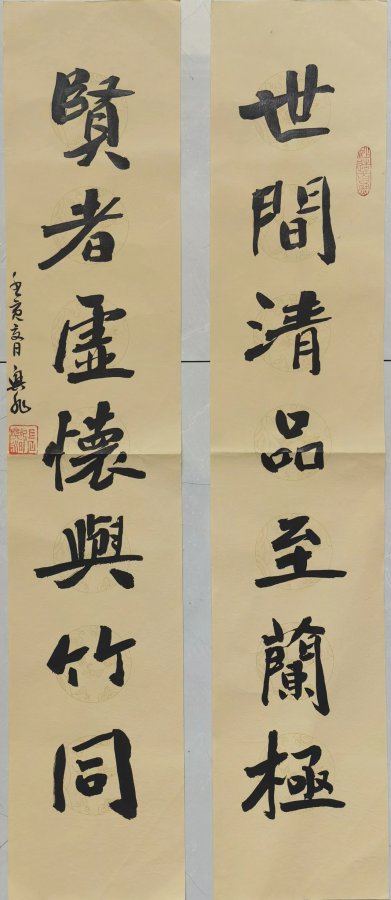 世間清品至蘭極
賢者虛懷與竹同
壬寅夏月